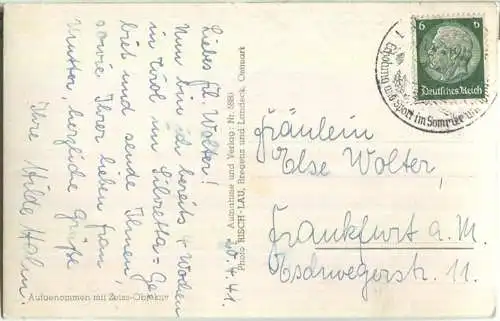 Liebes Frl. Wolter!
Nun bin ich bereits 4 Wochen
in Tirol im Silvretta-Ge-
biet und sende Ihnen,
sowie Ihrer lieben Frau
Mutter, herzliche Grüße
Ihre Hilde Hahn.
20.4.41.
Aufgenommen mit Zeiss-Objektiv
Aufnahme und Verlag: Nr. 
Photo RISCH-LAU, Bregenz und Landeck, Ostmark
6 6
Deutsches Reich
Erholung und Sport im Sommer
Fräulein
Else Wolter,
Frankfurt a. M.
Eschwegerstr. 11.